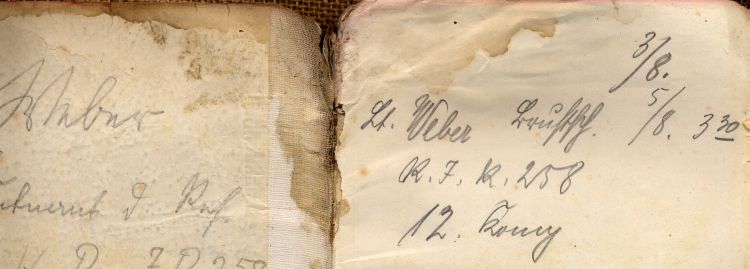 Weber
utnant d. Res.
258
3/8.
Lt. Weber 5/8. 3 30
R. I. R. 258
12. Komp